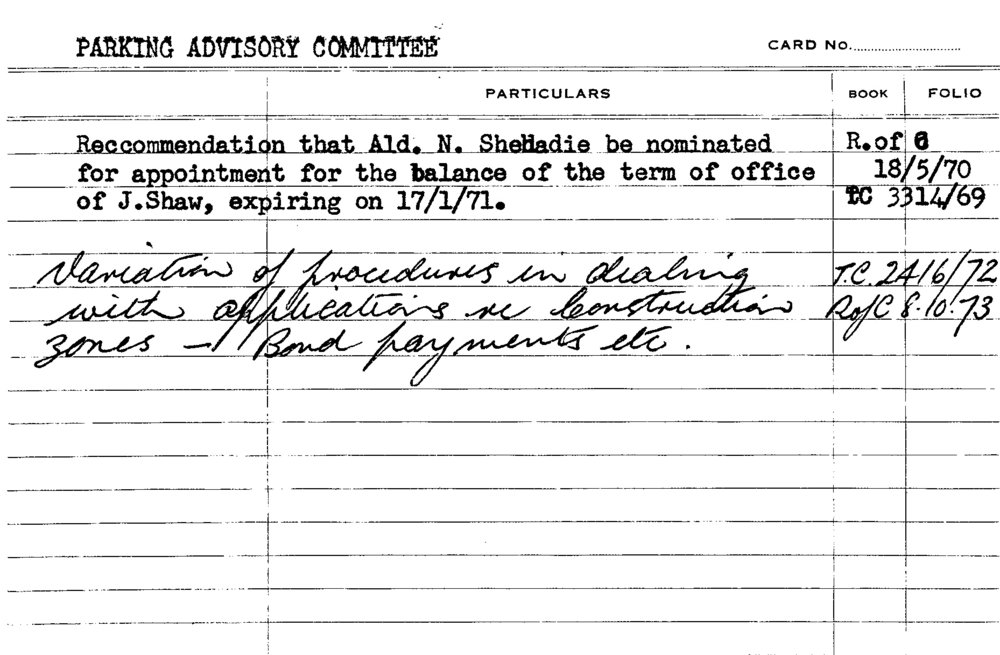 PARKING ADVISORY COMMITTEE CARD No.
PARTICULARS BOOK FOLIO
Reccommendation that Ald. N. Shehadie be nominated R.of C
for appointment for the balance of the term of office 18/5/70
of J.Shaw, expiring on 17/1/71. TC 3314/69
Variation of procedures in dealing T.C. 2416/72
with applications re Construction RofC 8.10.73
zones - Bond payments etc.